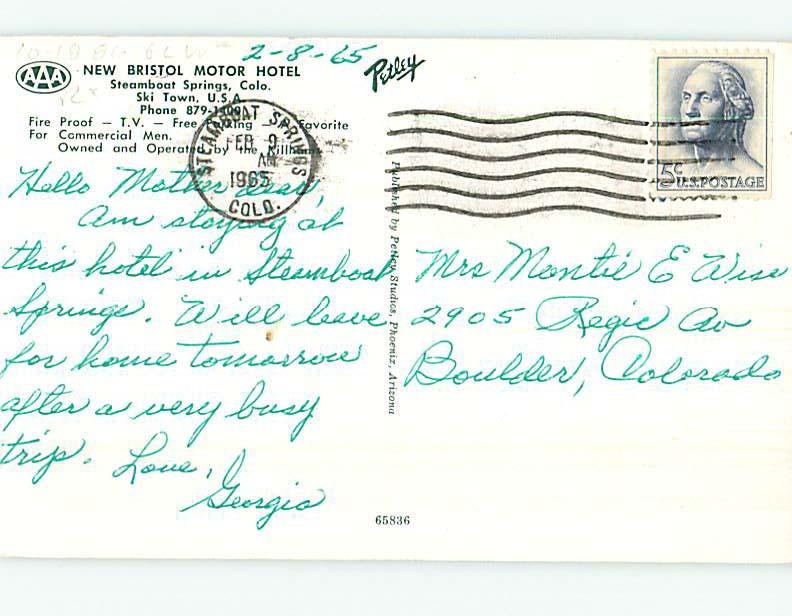 2-8-65
Petley
AAA
NEW BRISTOL MOTOR HOTEL
Steamboat Springs, Colo.
Ski Town, U.S.A.
Phone 879-
Fire Proof — T.V. — Free Parking Favorite
For Commercial Men.
Owned and Operated by the
STEAMBOAT SPRINGS
FEB 9
AM
1965
COLO.
5c U.S. POSTAGE
Hello Mother dear,
Am staying at
this hotel in Steamboat
Springs. Will leave
for home tomorrow
after a very busy
trip. Love,
Georgia
Published by Petley Studios, Phoenix, Arizona
Mrs Montie E Wise
2905 Regis Av
Boulder, Colorado
65836